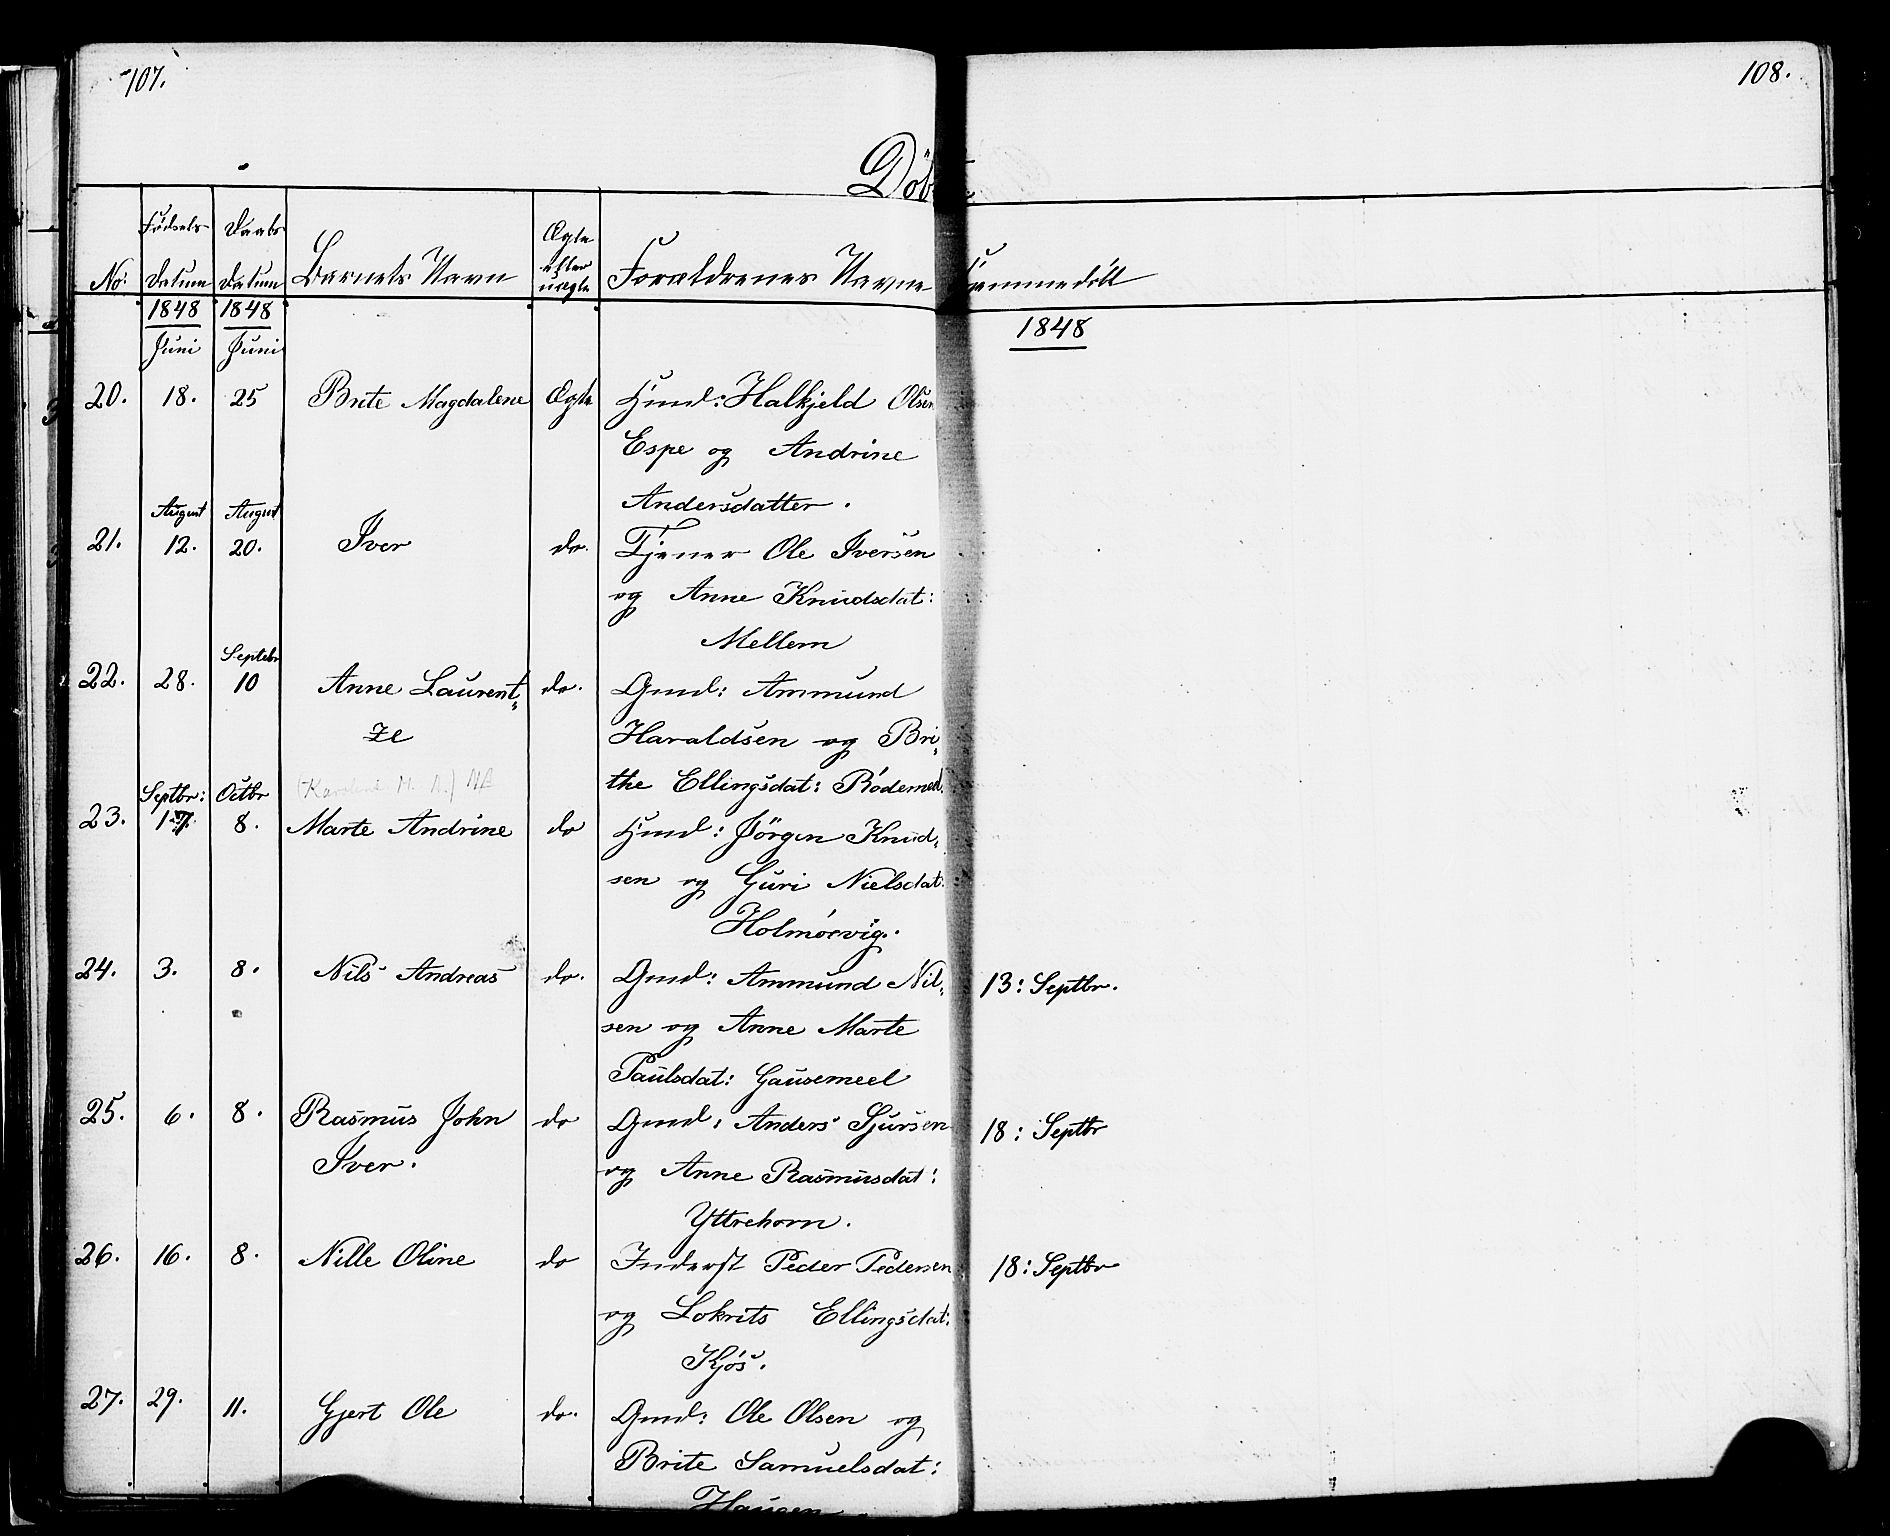 107.
108.
Döb
No:
Födsels-
Datum
Daabs
Datum
Barnets Navn
Ægte
eller
uægte
Forældrenes Navne
Hjemmedöbt
1848
1848
1848
Juni
Juni
20. 18. 25 Brite Magdalene Ægte Huusm: Halkjeld Olsen
Espe og Andrine
Andersdatter.
August August
21. 12. 20. Iver do. Tjener Ole Iversen
og Anne Knudsdat:
Mellem
Septebr
22. 28. 10 Anne Laurent- do. Gmd: Ammund
ze Haraldsen og Bri-
the Ellingsdat: Rödemeel
Septbr: Octbr
23. 17. 8. Marte Andrine do Huusm: Jörgen Knud-
sen og Guri Nielsdat:
Holmörvig.
24. 3. 8. Nils Andreas do. Gmd: Ammund Nil- 13: Septbr.
sen og Anne Marte
Paulsdat: Gausemeel
25. 6. 8. Rasmus John do Gmd: Anders Sjursen 18: Septbr
Iver. og Anne Rasmusdat:
Yttrehorn.
26. 16. 8. Nille Oline do Inderst Peder Pedersen 18: Septbr
og Lokrits Ellingsdat:
Kjös.
27. 29. 11. Gjert Ole do. Gmd: Ole Olsen og
Brite Samuelsdat:
Haugen